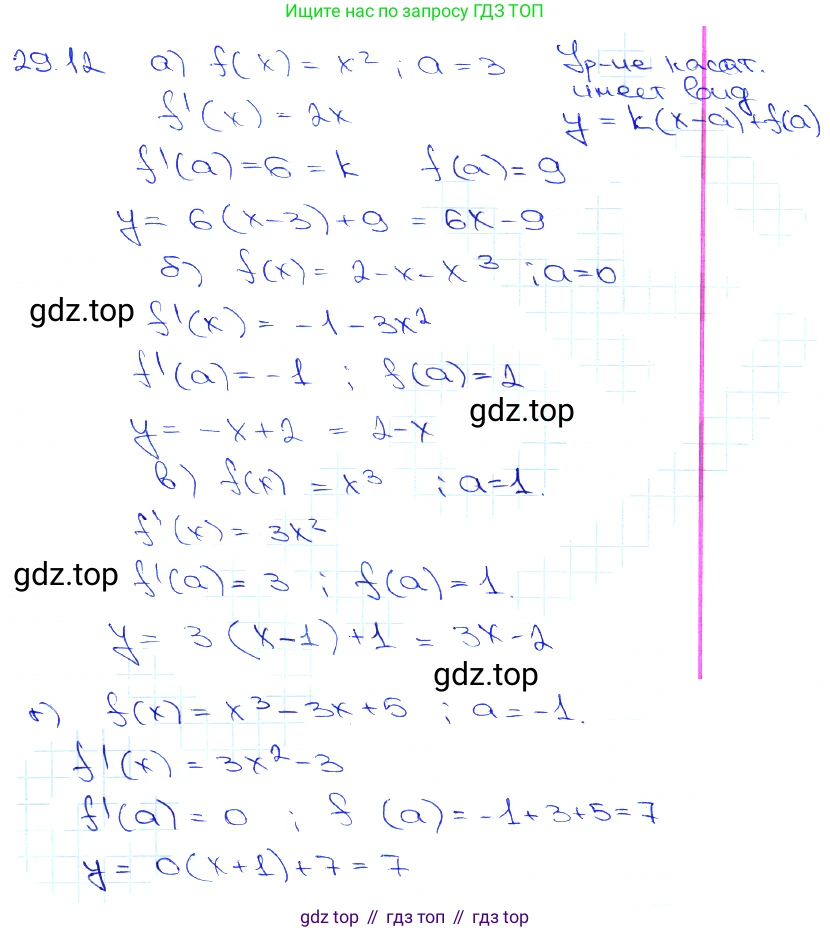 Ищите нас по запросу ГДЗ ТОП
29.12 а) f(x) = x² ; a = 3
Ур-ие касат.
имеет вид
y = k(x-a)+f(a)
f'(x) = 2x
f'(a) = 6 = k f(a) = 9
y = 6(x-3)+9 = 6x-9
б) f(x) = 2-x-x³ ; a=0
gdz.top
f'(x) = -1-3x²
f'(a) = -1 ; f(a) = 2
gdz.top
y = -x+2 = 2-x
в) f(x) = x³ ; a=1.
f'(x) = 3x²
gdz.top
f'(a) = 3 ; f(a) = 1.
y = 3(x-1)+1 = 3x-2
gdz.top
г) f(x) = x³-3x+5 ; a = -1.
f'(x) = 3x²-3
f'(a) = 0 ; f(a) = -1+3+5=7
y = 0(x+1)+7 = 7
gdz top // гдз топ // gdz top